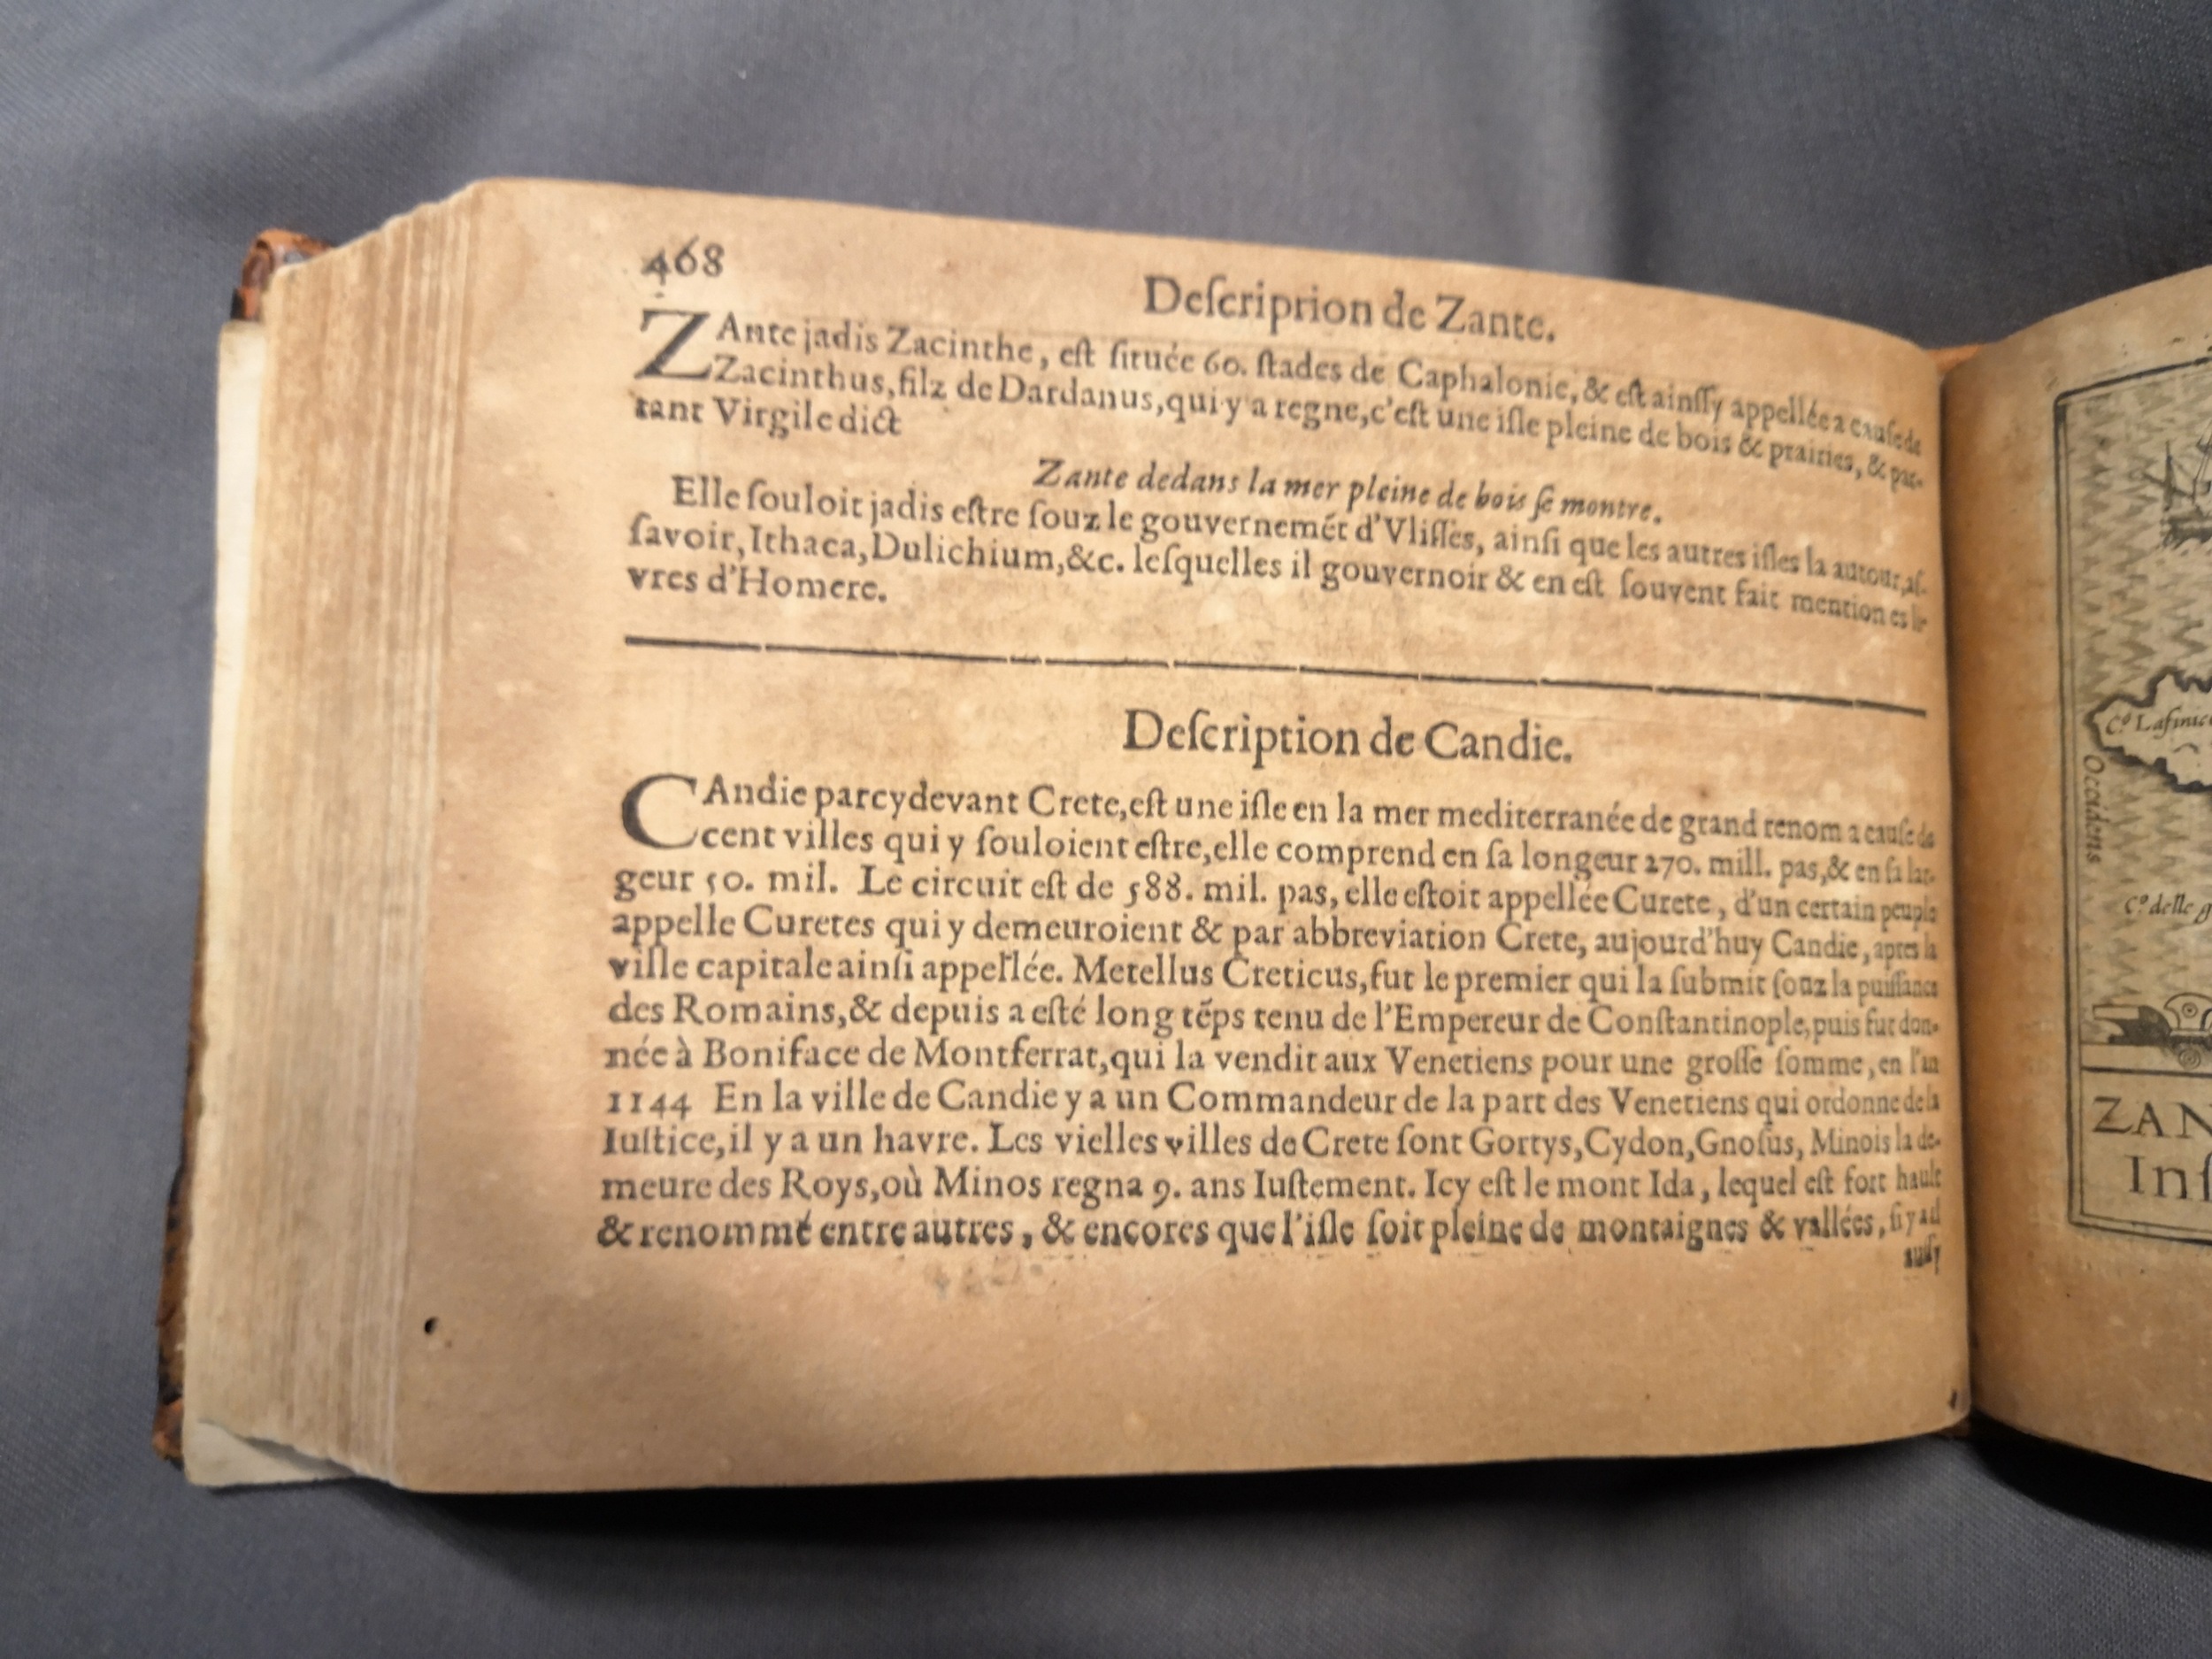 468
Deſcriprion de Zante.
ZAnte jadis Zacinthe, eſt ſituée 60. ſtades de Caphalonie, & eſt ainſſy appellée a cauſe de
Zacinthus, filz de Dardanus, qui y a regne, c'eſt une iſle pleine de bois & prairies, & par-
tant Virgile dict
Zante dedans la mer pleine de bois ſe montre.
Elle ſouloit jadis eſtre ſouz le gouvernemét d'Vliſſes, ainſi que les autres iſles la autour, aſ-
ſavoir, Ithaca, Dulichium, &c. leſquelles il gouvernoir & en eſt ſouvent fait mention es li-
vres d'Homere.
Deſcription de Candie.
CAndie parcydevant Crete, eſt une iſle en la mer mediterranée de grand renom a cauſe de
cent villes qui y ſouloient eſtre, elle comprend en ſa longeur 270. mill. pas, & en ſa lar-
geur 50. mil. Le circuit eſt de 588. mil. pas, elle eſtoit appellée Curete, d'un certain peuple
appelle Curetes qui y demeuroient & par abbreviation Crete, aujourd'huy Candie, apres la
ville capitale ainſi appellée. Metellus Creticus, fut le premier qui la ſubmit ſouz la puiſſance
des Romains, & depuis a eſté long tẽps tenu de l'Empereur de Conſtantinople, puis fut don-
née à Boniface de Montferrat, qui la vendit aux Venetiens pour une groſſe ſomme, en l'an
1144 En la ville de Candie y a un Commandeur de la part des Venetiens qui ordonne de la
Iuſtice, il y a un havre. Les vielles villes de Crete ſont Gortys, Cydon, Gnoſus, Minois la de-
meure des Roys, où Minos regna 9. ans Iuſtement. Icy eſt le mont Ida, lequel eſt fort hault
& renommé entre autres, & encores que l'iſle ſoit pleine de montaignes & vallées, ſi y a il
auſſy
Cº Laſinic
Occidens
Cº delle g
ZAN
Inſ